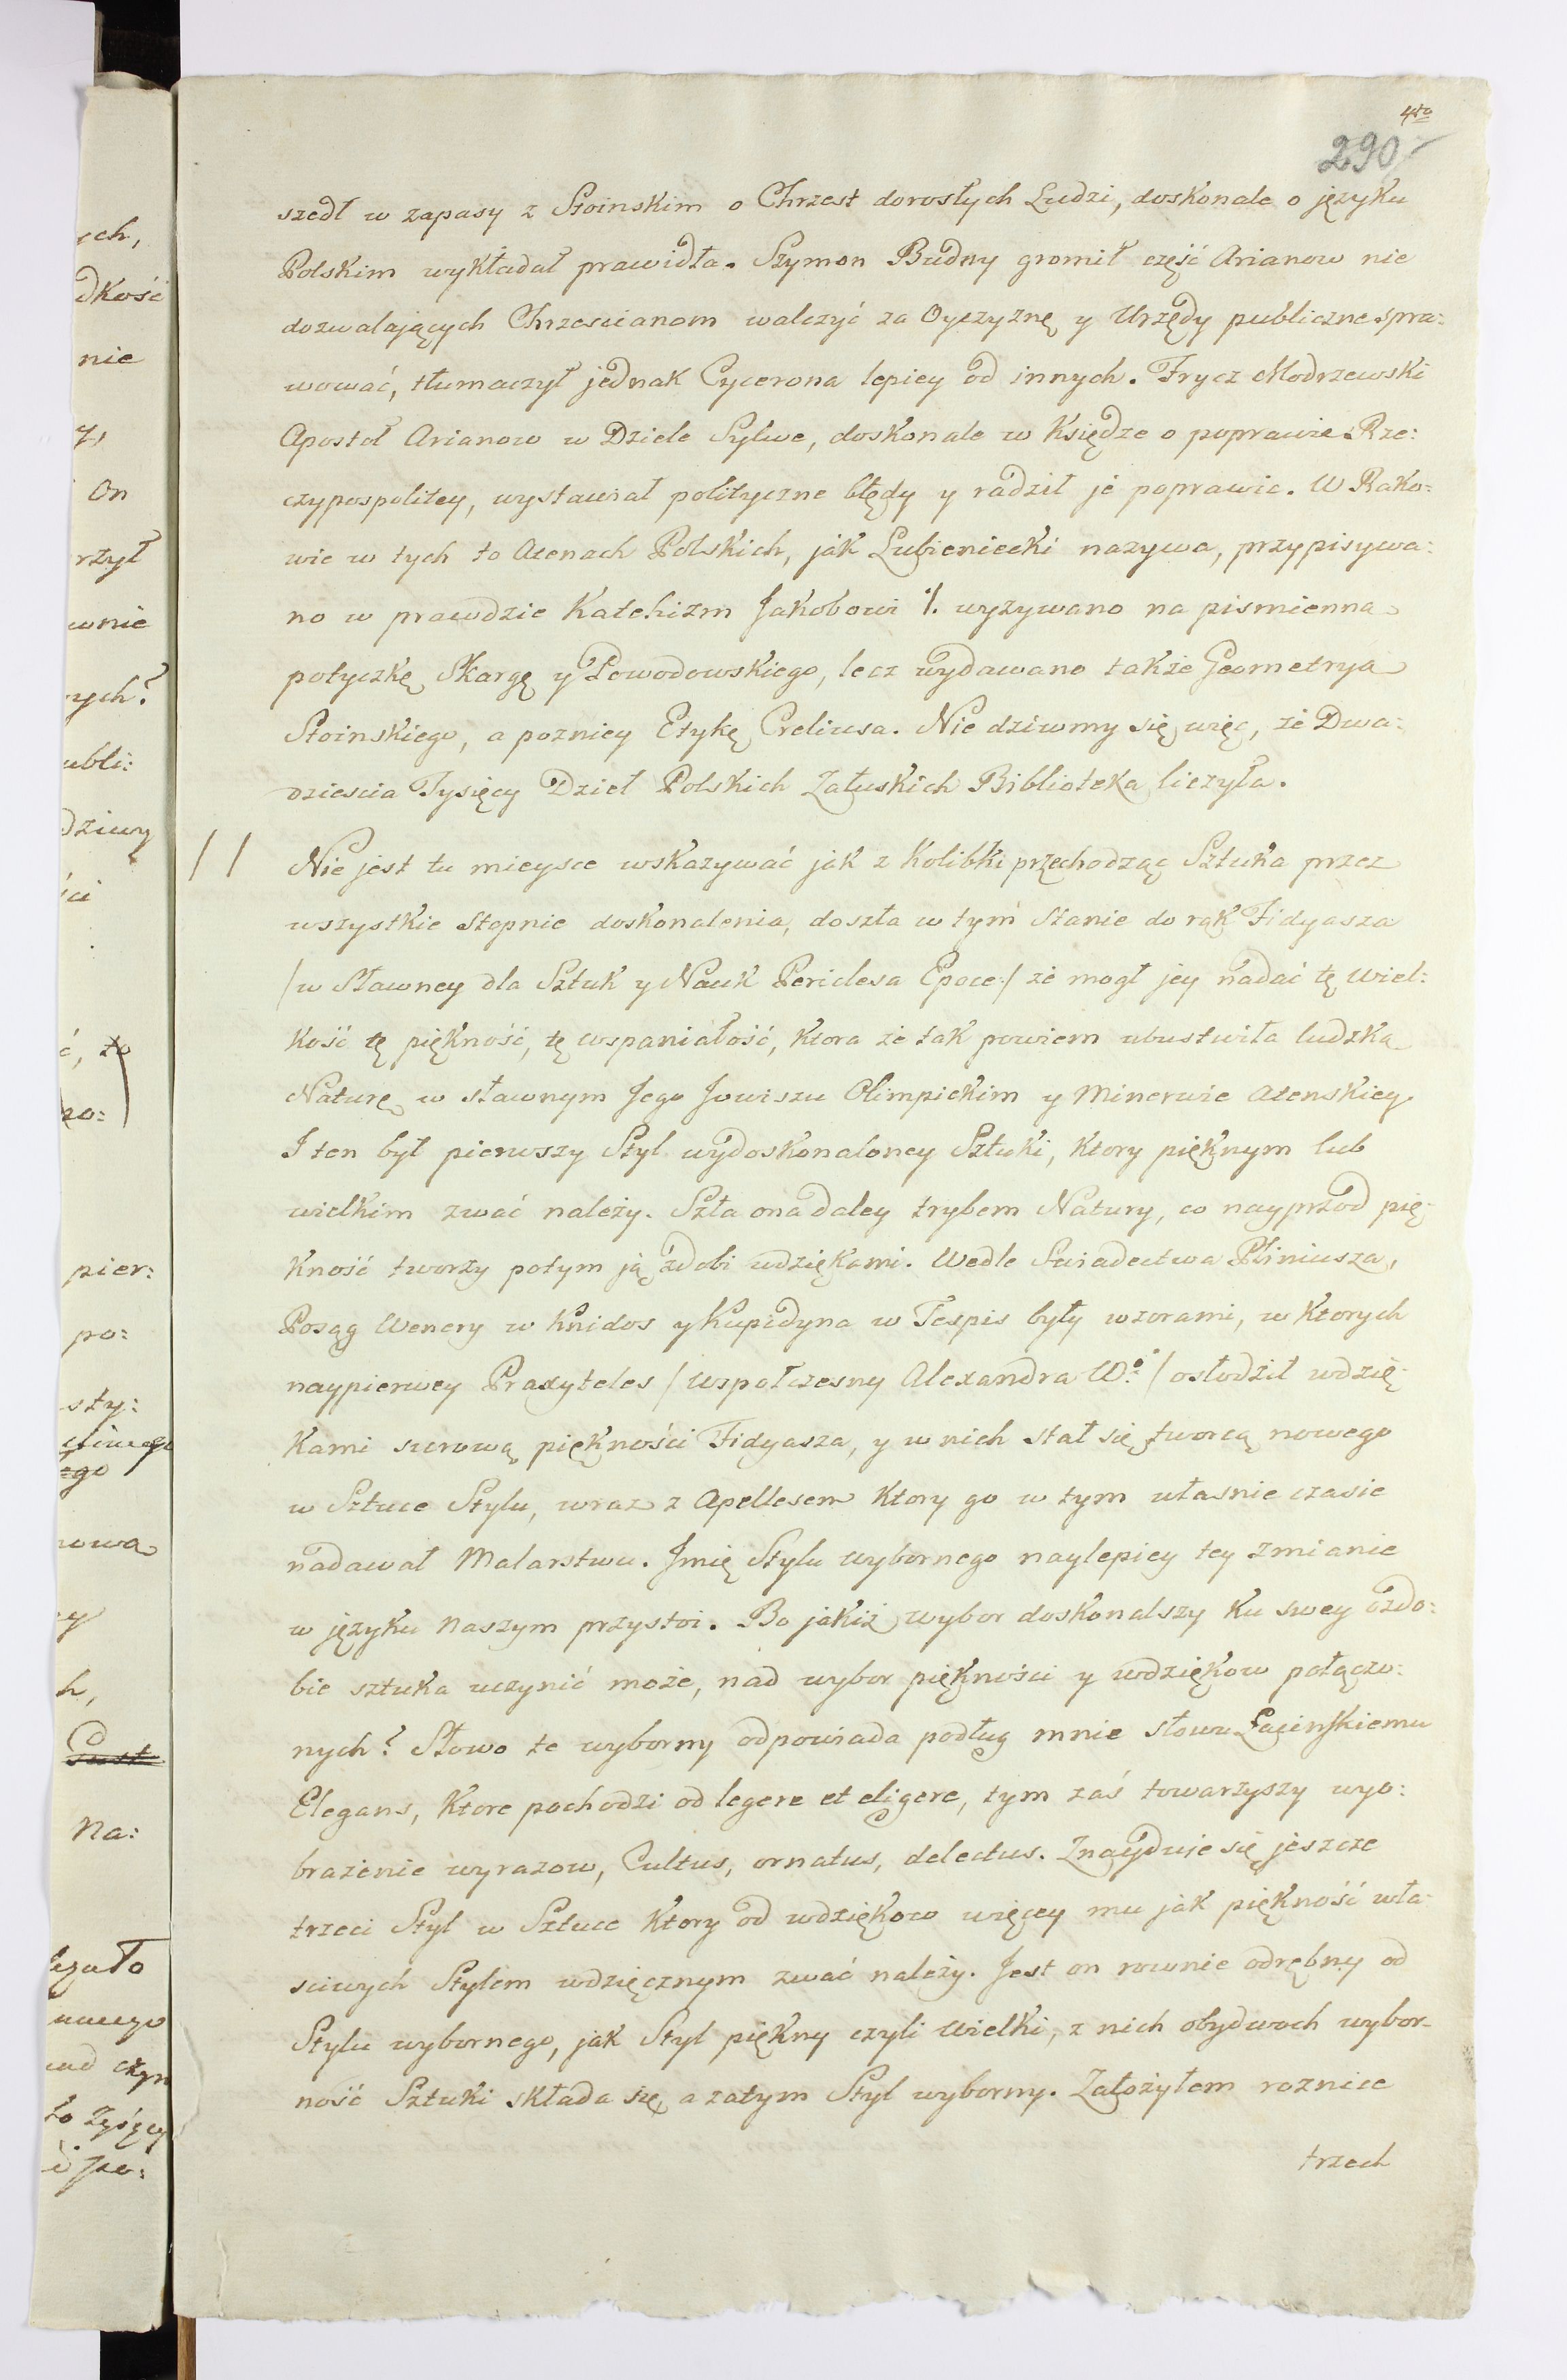 4to
290
szedł w zapasy z Stoinskim o Chrzest dorosłych Ludzi, doskonale o języku
Polskim wykładał prawidła. Szymon Budny gromił część Arianow nie
dozwalających Chrzescianom walczyć za Oyczyznę y Urzędy publiczne spra:
wować, tłumaczył jednak Cycerona lepiey od innych. Frycz Modrzewski
Apostoł Arianow w Dziele Sylwe, doskonale w Księdze o poprawie Rze:
czypospolitey, wystawiał polityczne błędy y radził je poprawic. W Rako:
wie w tych to Atenach Polskich, jak Lubieniecki nazywa, przypisywa:
no w prawdzie Katehizm Jakobowi 1. wyzywano na pismienna
potyczkę Skargę y Powodowskiego, lecz wydawano także Geometrya
Stoinskiego, a pozniey Etykę Creliusa. Nie dziwmy się więc, że Dwa:
dziescia Tysięcy Dzieł Polskich Załuskich Biblioteka liczyła.
// Nie jest tu mieysce wskazywać jak z Kolibki przechodząc Sztuka przez
wszystkie stopnie doskonalenia, doszła w tym Stanie do rąk Fidyasza
/w Sławney dla Sztuk y Nauk Periclesa Epoce:/ że mogł jey nadać tę wiel:
kość tę piękność, tę wspaniałość, ktora że tak powiem ubustwiła ludzką
Naturę w sławnym Jego Jowiszu Olimpickim y Minerwie Atenskiey.
I ten był pierwszy Styl wydoskonaloney Sztuki, ktory pięknym lub
wielkim zwać należy. Szła ona daley trybem Natury, co nayprzod pię:
kność tworzy potym ją zdobi wdziękami. Wedle Swiadectwa Pliniusza,
Posąg Wenery w Knidos y Kupidyna w Tespis były wzorami, w ktorych
naypierwey Praxyteles /wspołczesny Alexandra Wo:/ osłodził wdzię:
kami surową piękności Fidyasza, y w nich stał się tworcą nowego
w Sztuce Stylu, wraz z Apellesem ktory go w tym własnie czasie
nadawał Malarstwu. Jmię Stylu wybornego naylepiey tey zmianie
w języku naszym przystoi. Bo jakiż wybor doskonalszy ku swey ozdo:
bie sztuka uczynić może, nad wybor piękności y wdziękow połączo:
nych? Słowo te wyborny odpowiada podług mnie słowu Łacinskiemu
Elegans, ktore pochodzi od legere et eligere, tym zaś towarzyszy wyo:
brażenie wyrazow, Cultus, ornatus, delectus. Znayduie się jeszcze
trzeci Styl w Sztuce ktory od wdziękow więcey mu jak piękność wła:
sciwych Stylem wdzięcznym zwać należy. Jest on rownie odrębny od
Stylu wybornego, jak Styl piękny czyli wielki, z nich obydwoch wybor-
ność Sztuki składa się, a zatym Styl wyborny. Założyłem roznice
trzech